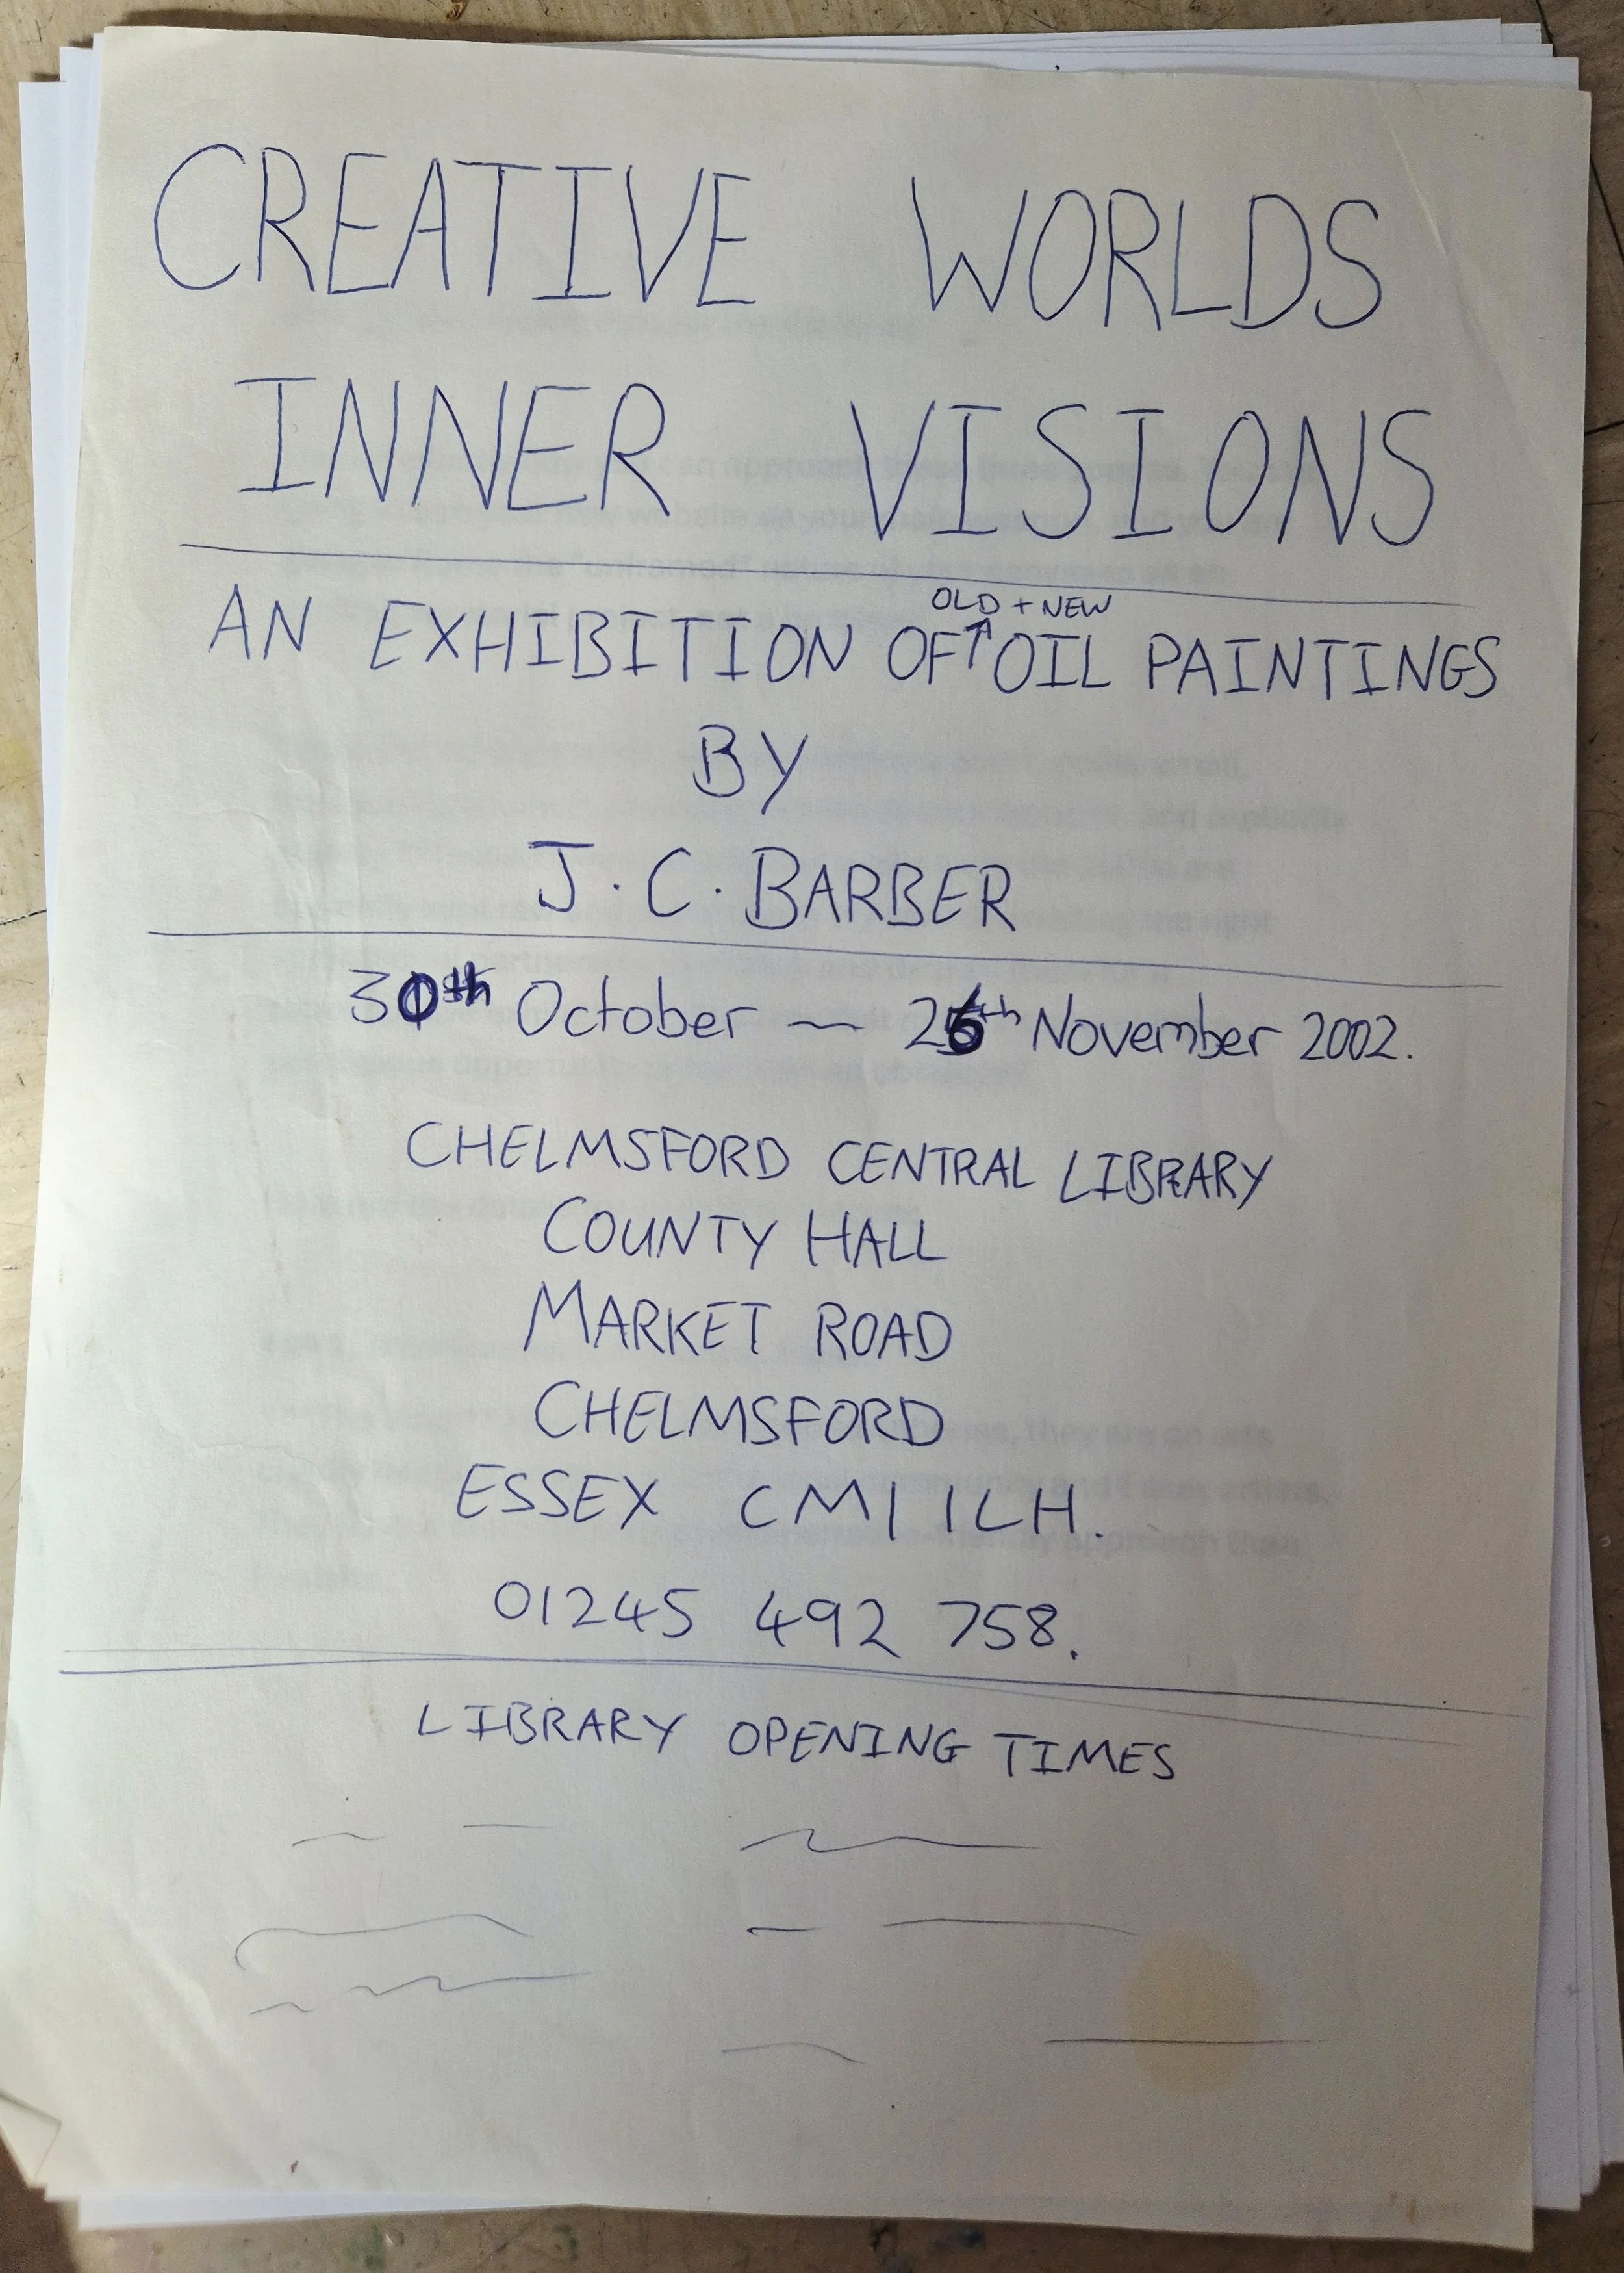 CREATIVE WORLDS
INNER VISIONS
OLD + NEW
AN EXHIBITION OF ↑ OIL PAINTINGS
BY
J. C. BARBER
30th October — 26th November 2002.
CHELMSFORD CENTRAL LIBRARY
COUNTY HALL
MARKET ROAD
CHELMSFORD
ESSEX CM1 1LH.
01245 492 758.
LIBRARY OPENING TIMES